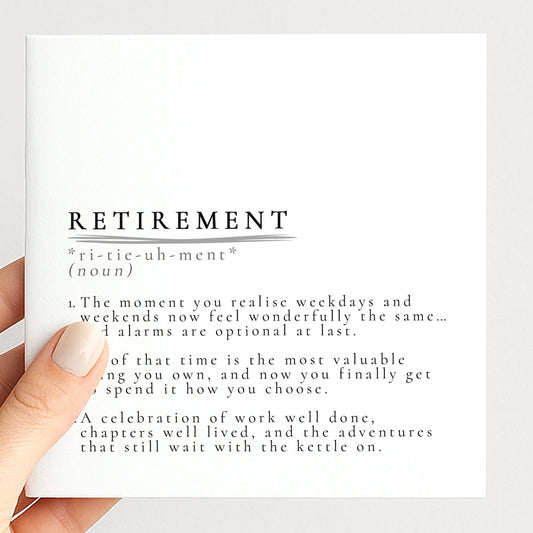 RETIREMENT
*ri-tie-uh-ment*
(noun)
1. The moment you realise weekdays and
weekends now feel wonderfully the same…
alarms are optional at last.
of that time is the most valuable
you own, and now you finally get
spend it how you choose.
A celebration of work well done,
chapters well lived, and the adventures
that still wait with the kettle on.